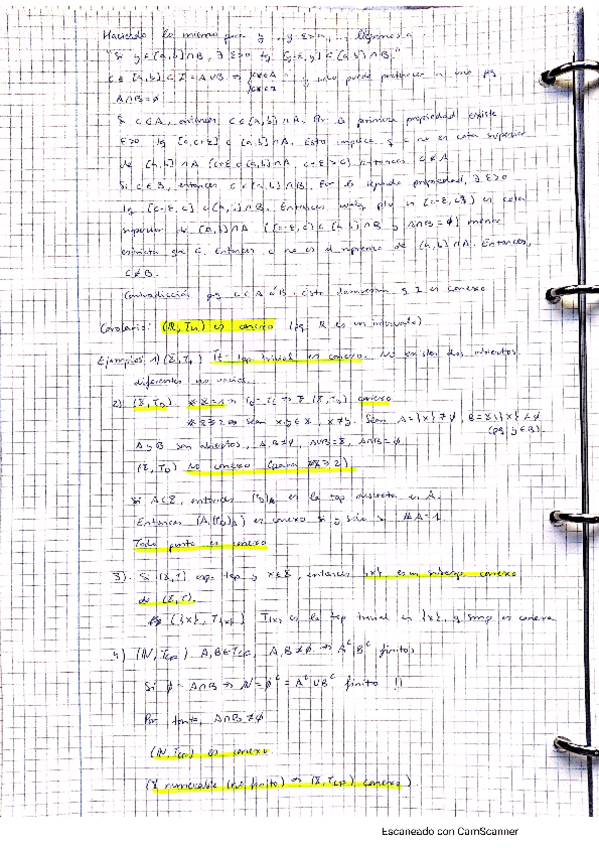 Haciendo lo mismo para y, y ε>0, ..., llegamos a
"Si y∈[a,b]∩B, ∃ ε>0 tq (y-ε,y] ⊂ [a,b]∩B."
c∈[a,b]⊂I=A∪B ⇒ y solo puede pertenecer a uno pq
A∩B=∅
Si c∈A, entonces c∈[a,b]∩A. Por la primera propiedad existe
ε>0 tq [c,c+ε] ⊂ [a,b]∩A. Esto implica q c no es cota superior
de [a,b]∩A (c+ε∈[a,b]∩A, c+ε>c) entonces c∉A
Si c∈B, entonces c∈[a,b]∩B. Por la segunda propiedad, ∃ ε>0
tq [c-ε,c] ⊂ [a,b]∩B. Entonces es cota
superior de [a,b]∩A ([c-ε,c]⊂[a,b]∩B y A∩B=∅) menor
que c. Entonces c no es el supremo de [a,b]∩A. Entonces,
c∉B.
Contradicción pq c∈A ó B. Esto demuestra q I es conexo
Corolario: (ℝ,Tu) es conexo (pq ℝ es un intervalo)
Ejemplos 1) (X,Tt) La top trivial es conexa. No existen dos abiertos
diferentes no vacíos.
2) (X,TD) #X=1 ⇒ TD=Tt ⇒ (X,TD) conexo
#X≥2 ⇒ Sean x,y∈X, x≠y. Sean A={x}≠∅, B=X\{x}≠∅
(pq y∈B).
A y B son abiertos, A,B≠∅, A∪B=X, A∩B=∅
(X,TD) no conexo (para #X≥2)
Si A⊂X, entonces (TD)A es la top discreta en A.
Entonces (A,(TD)A) es conexo si y sólo si #A=1.
Todo punto es conexo
3). Si (X,T) esp top y x∈X, entonces {x} es un subesp conexo
de (X,T).
({x},T{x}) T{x} es la top trivial en {x}, y siemp es conexa
4) (ℕ,Tcf) A,B∈Tcf, A,B≠∅ ⇒ Aᶜ, Bᶜ finitos
Si ∅=A∩B ⇒ ℕ=∅ᶜ=Aᶜ∪Bᶜ finito !!
Por tanto, A∩B≠∅
(ℕ,Tcf) es conexo
(X numerable (no finito) ⇒ (X,Tcf) conexo)
Escaneado con CamScanner